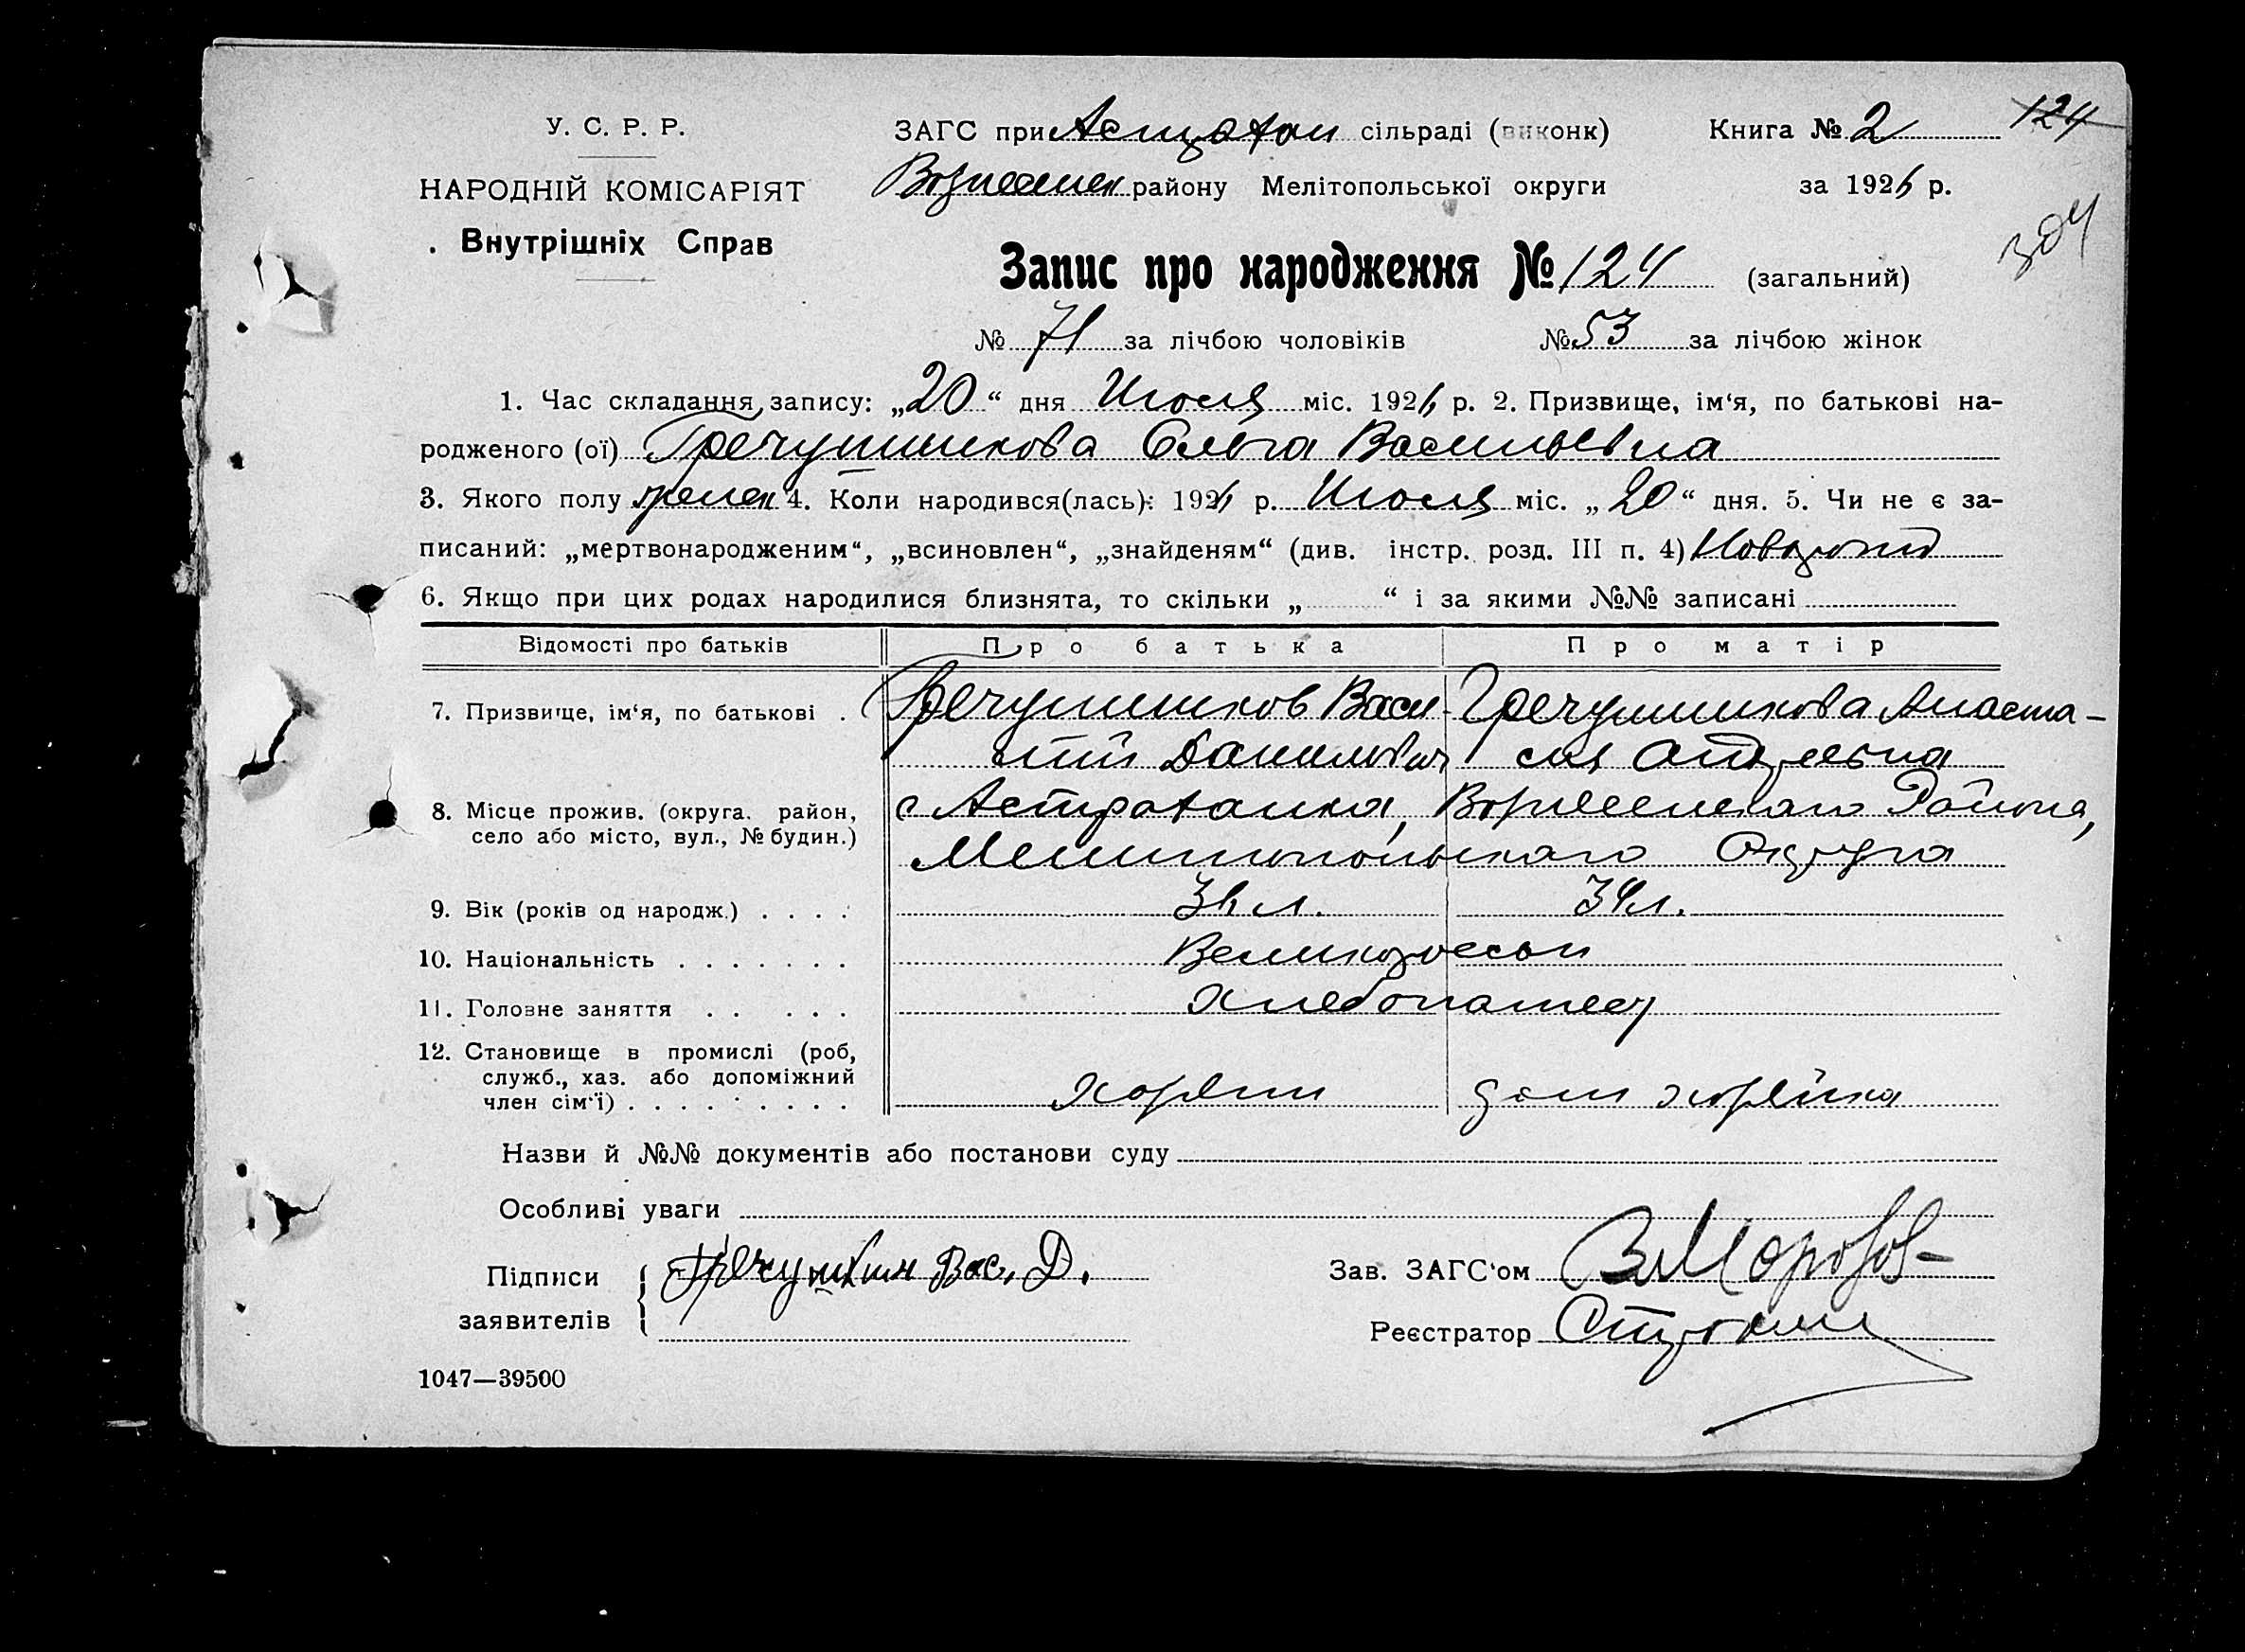 У. С. Р. Р.
НАРОДНІЙ КОМІСАРІЯТ
Внутрішніх Справ
ЗАГС при Астрахан сільраді (виконк)
Книга № 2
124
Вознесенск району Мелітопольської округи
за 1926 р.
304
Запис про народження № 124 (загальний)
№ 71 за лічбою чоловіків № 53 за лічбою жінок
1. Час складання запису: „20“ дня Июля міс. 1926 р. 2. Призвище, ім‘я, по батькові на-
родженого (ої) Гречушникова Ольга Васильевна
3. Якого полу женск 4. Коли народився(лась): 1926 р. Июля міс. „20“ дня. 5. Чи не є за-
писаний: „мертвонародженим“, „всиновлен“, „знайденям“ (див. інстр. розд. III п. 4)
6. Якщо при цих родах народилися близнята, то скільки „ “ і за якими №№ записані
Відомості про батьків Про батька Про матір
7. Призвище, ім‘я, по батькові . Гречушников Васи- Гречушникова Анаста-
лий Данилович сия Андреевна
8. Місце прожив. (округа. район,
село або місто, вул., № будин.)
с Астраханка, Вознесенскаго Района,
Мелитопольскаго Округа
9. Вік (років од народж.) . . . . 36 л. 34 л.
10. Національність . . . . . . . Великороссы
11. Головне заняття . . . . . Хлебопашец
12. Становище в промислі (роб,
служб., хаз. або допоміжний
член сім‘ї) . . . . . . . . . хозяин дом хозяйка
Назви й №№ документів або постанови суду
Особливі уваги
Підписи
заявителів
Вас. Д.
Зав. ЗАГС‘ом Морозов
Реєстратор
1047—39500